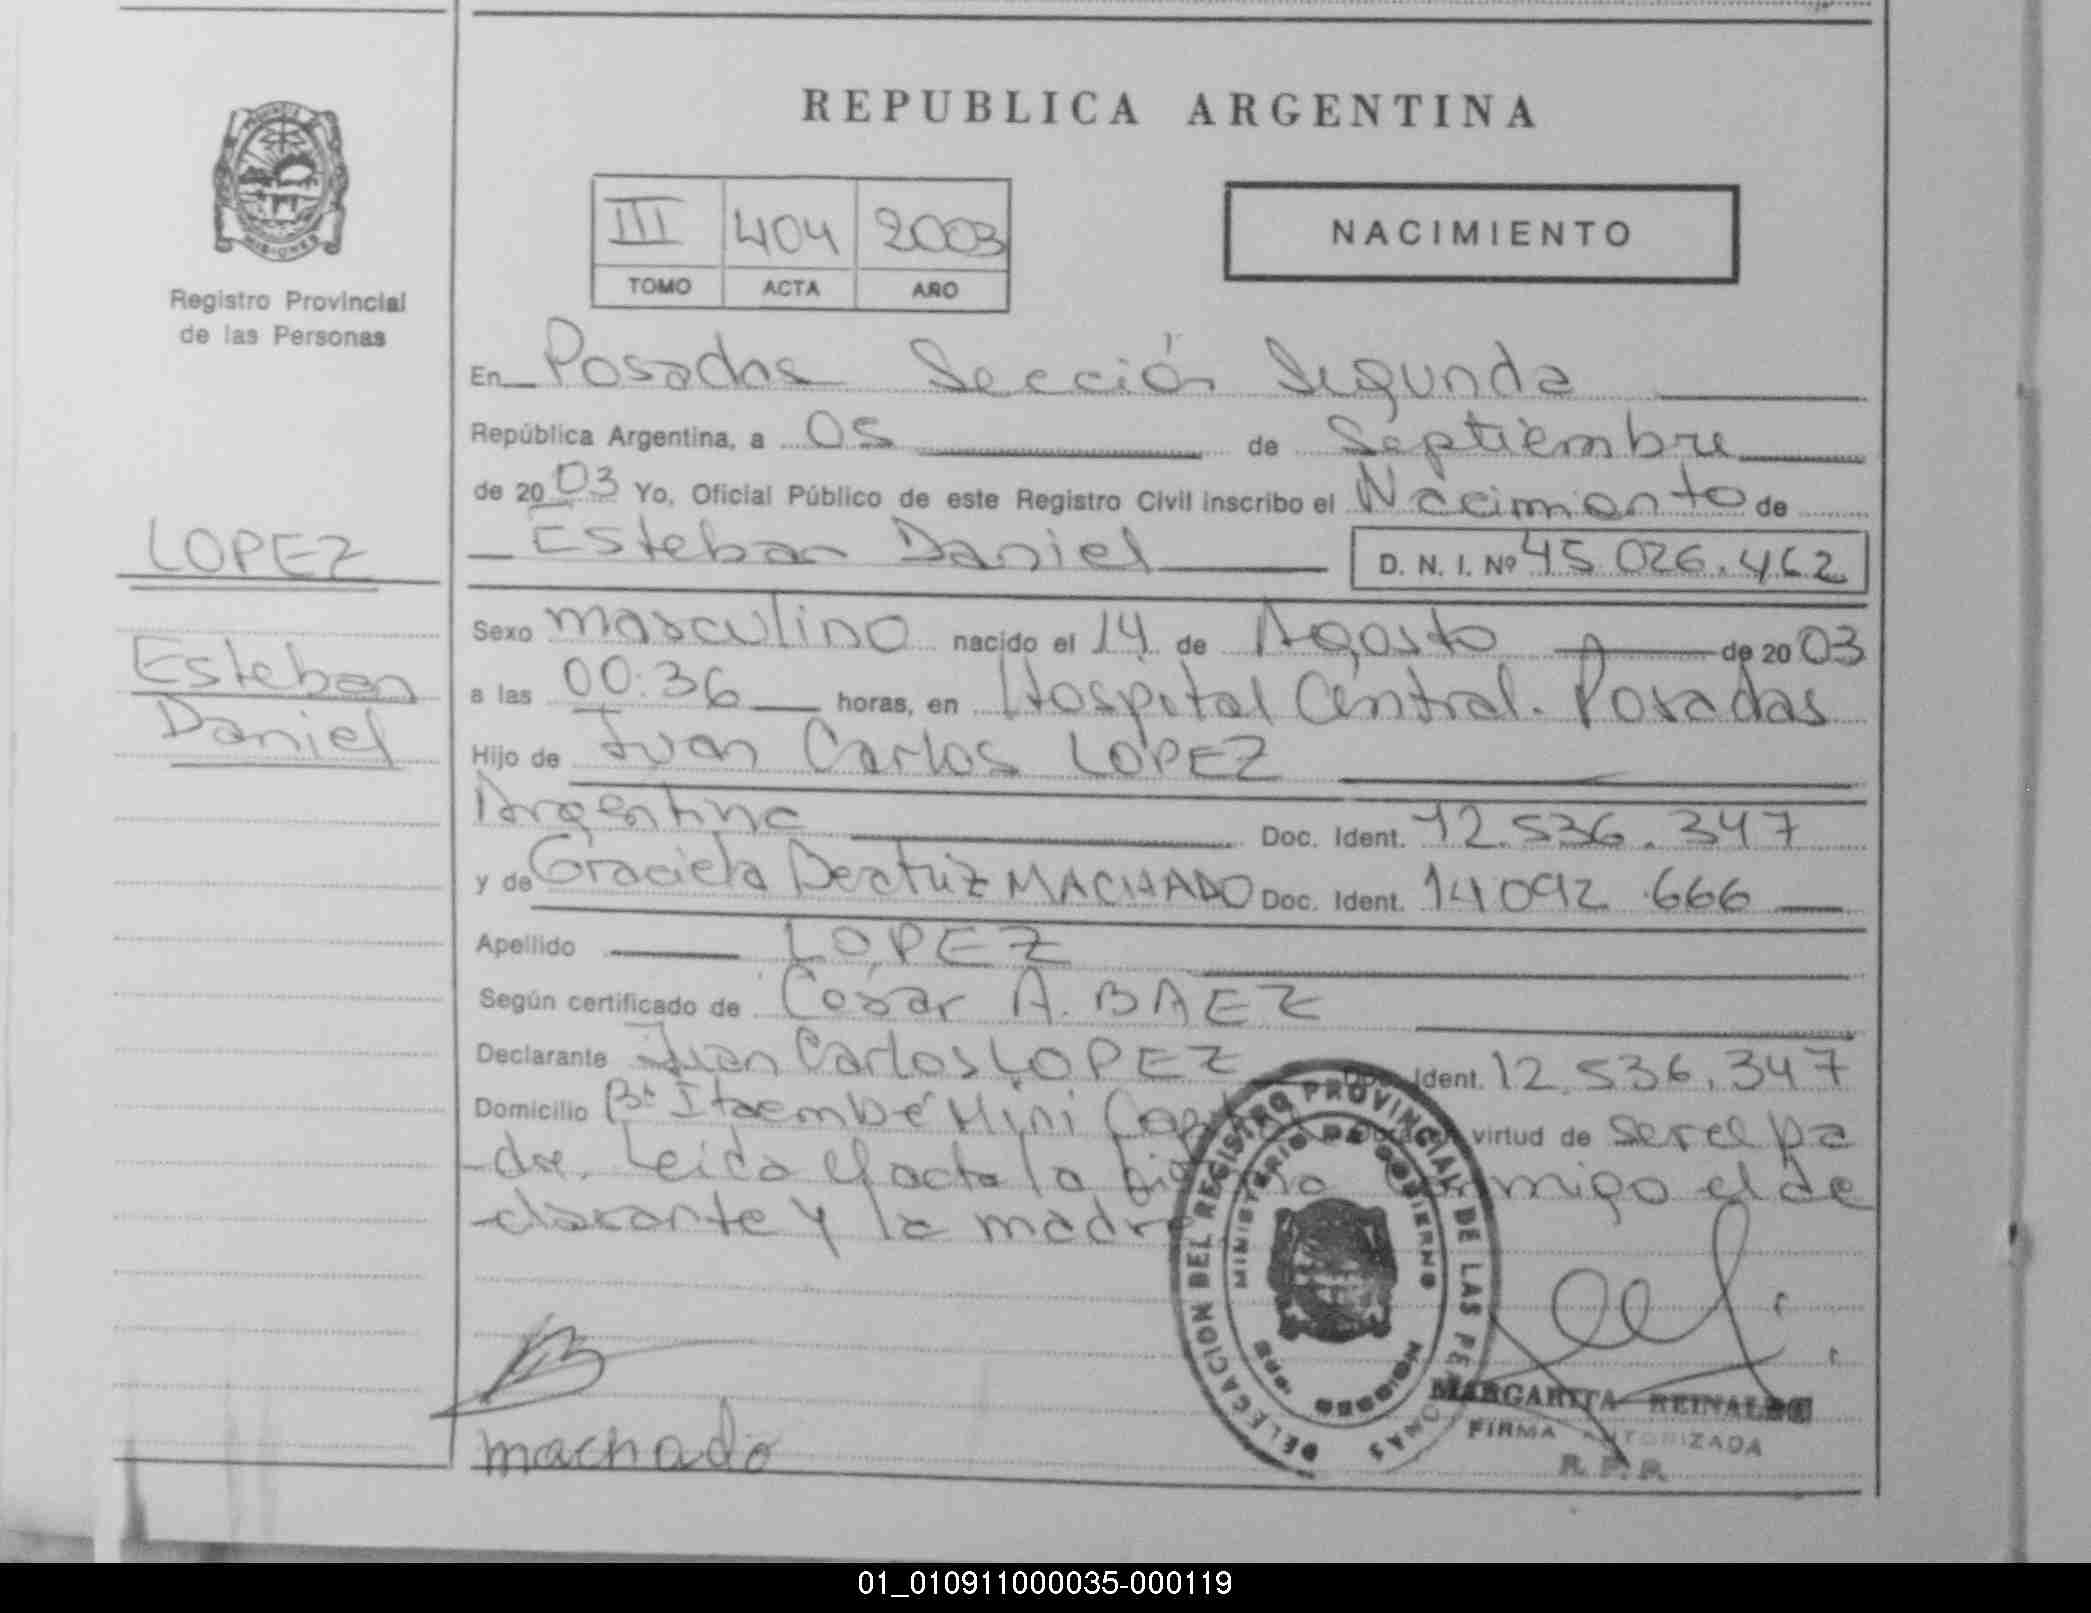 REPUBLICA ARGENTINA
III 404 2003
TOMO ACTA AÑO
NACIMIENTO
Registro Provincial
de las Personas
En Posadas Sección Segunda
República Argentina, a 05 de Septiembre
de 2003 Yo, Oficial Público de este Registro Civil inscribo el Nacimiento de
Esteban Daniel D. N. I. Nº 45.026.462
LOPEZ
Esteban
Daniel
Sexo masculino nacido el 14 de Agosto de 2003
a las 00:36 horas, en Hospital Central. Posadas
Hijo de Juan Carlos LOPEZ
Argentina Doc. Ident. 12.536.347
y de Graciela Beatriz MACHADO Doc. Ident. 14.092.666
Apellido LOPEZ
Según certificado de César A. BAEZ
Declarante Juan Carlos LOPEZ Doc. Ident. 12.536.347
Domicilio Bº Itaembé Mini virtud de ser el pa
dre. Leida el acta la migo el de
clarante y la madre
DELEGACION DEL REGISTRO PROVINCIAL DE LAS PERSONAS
MINISTERIO DE GOBIERNO
machado
MARGARITA REINALDO
FIRMA AUTORIZADA
R. P. P.
01_010911000035-000119